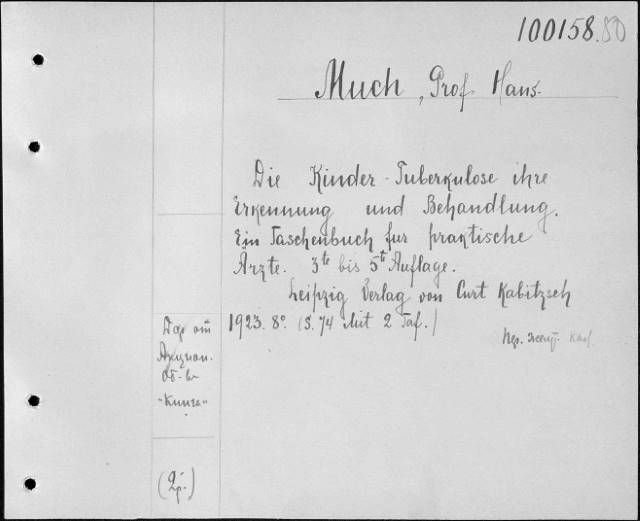 100158.80
Much, Prof. Hans.
Die Kinder-Tuberkulose ihre
Erkennung und Behandlung.
Ein Taschenbuch fur praktische
Ärzte. 3te bis 5t Auflage.
Leipzig Verlag von Curt Kabitzsch
1923. 8°. (S. 74 Mit 2 Taf.)
Дар от
Акцион.
Об-ва
"Книга"
(2р.)